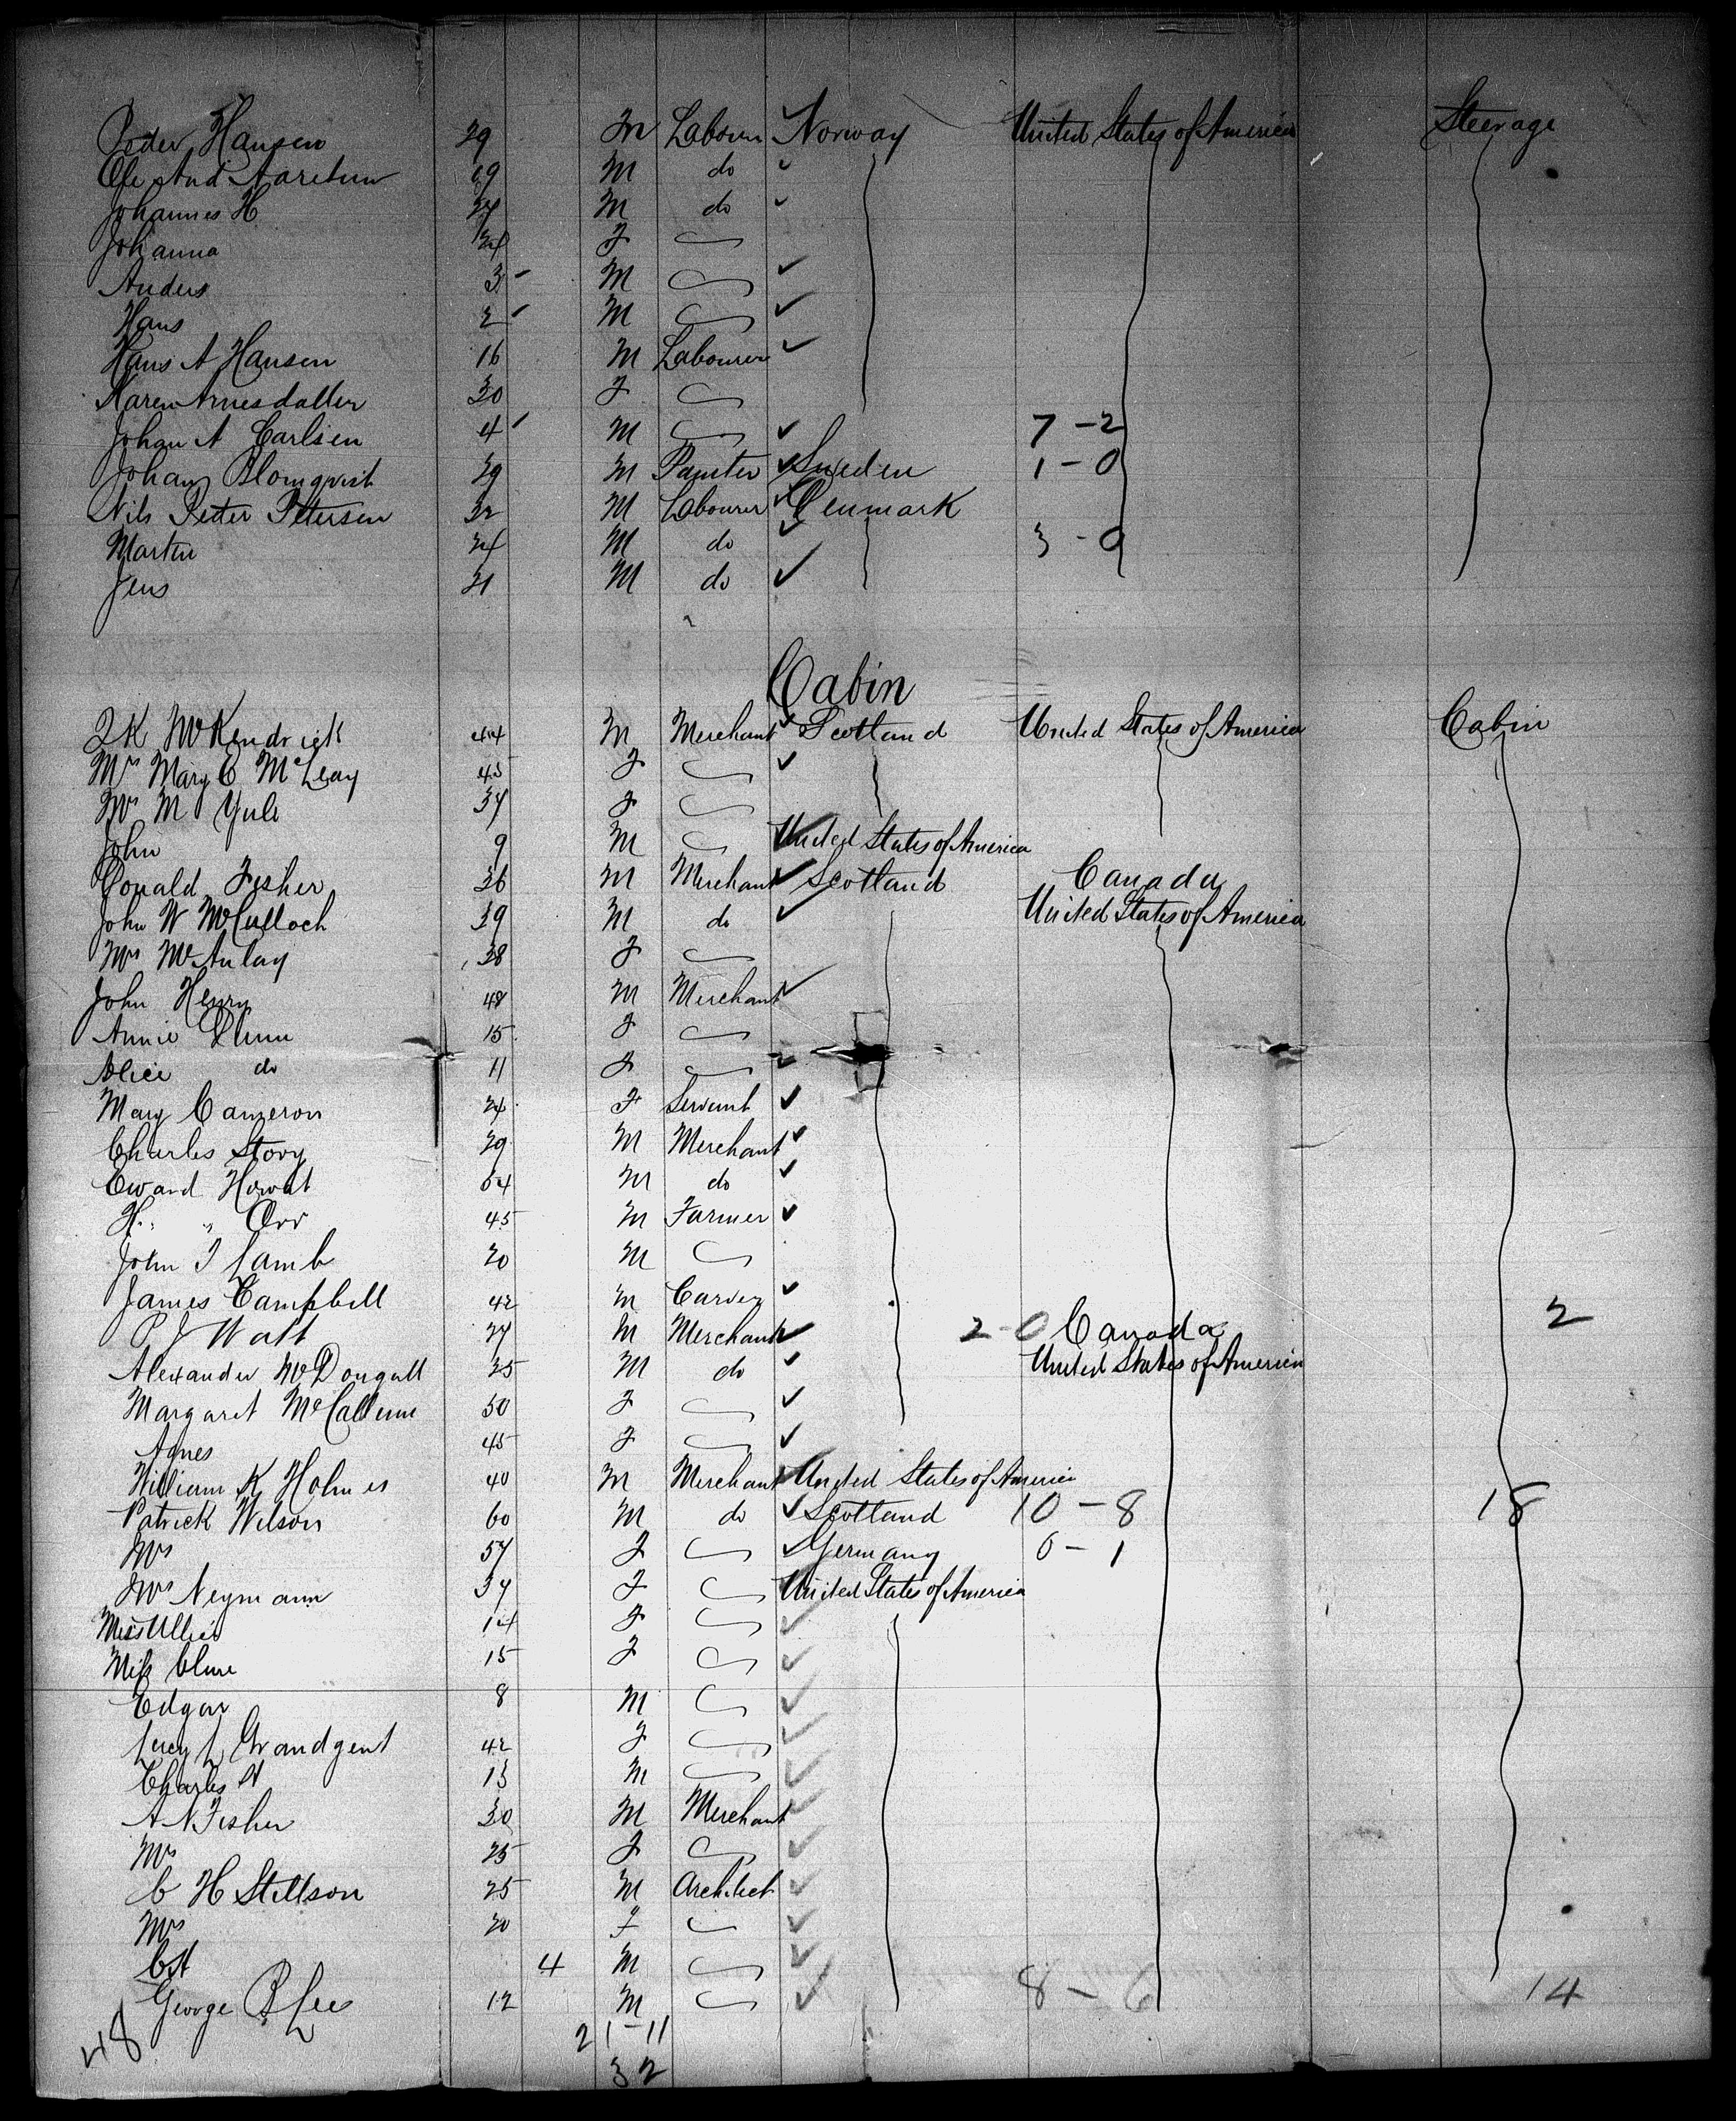 Peter Hansen 29 M Labourer Norway United States of America Steerage
Ole And 19 M do
Johannes H 24 M do
Johanna 24 F
Anders 3 M
Hans 2 M
Hans A Hansen 16 M Labourer
Karen Arnesdatter 30 F
Johan A Carlsen 4 M 7 - 2
Johan Blomqvist 29 M Painter Sweden 1 - 0
Nils Peter Petersen 32 M Labourer Denmark
Martin 24 M do 3 - 0
Jens 21 M do
Cabin
McKendrick 44 M Merchant Scotland United States of America Cabin
Mrs Mary E McLeay 45 F
Mrs M Yule 37 F
John 9 M United States of America
Donald Fisher 36 M Merchant Scotland Canada
John W McCulloch 39 M do United States of America
Mrs McAulay 38 F
John Henry 48 M Merchant
Annie 15 F
Alice do 11 F
Mary Cameron 24 F Servant
Charles Story 29 M Merchant
Edward Howat 54 M do
H " " Orr 45 M Farmer
John T Lamb 20 M
James Campbell 42 M Carver 2
P J Watt 27 M Merchant 2 - 0 Canada
Alexander McDougall 35 M do United States of America
Margaret McCallum 50 F
Agnes 45 F
William K Holmes 40 M Merchant United States of America
Patrick Wilson 60 M do Scotland 10 - 8 18
Mrs 57 F Germany 0 - 1
Mrs Neymann 37 F United States of America
Miss 14 F
Miss 15 F
Edgar 8 M
Lucy L Grandgent 42 F
Charles H 13 M
A N Fisher 30 M Merchant
Mrs 25 F
C H Stillson 25 M Architect
Mrs 20 F
4 M
George B Lee 12 M 8 - 6 14
48 21 - 11
32